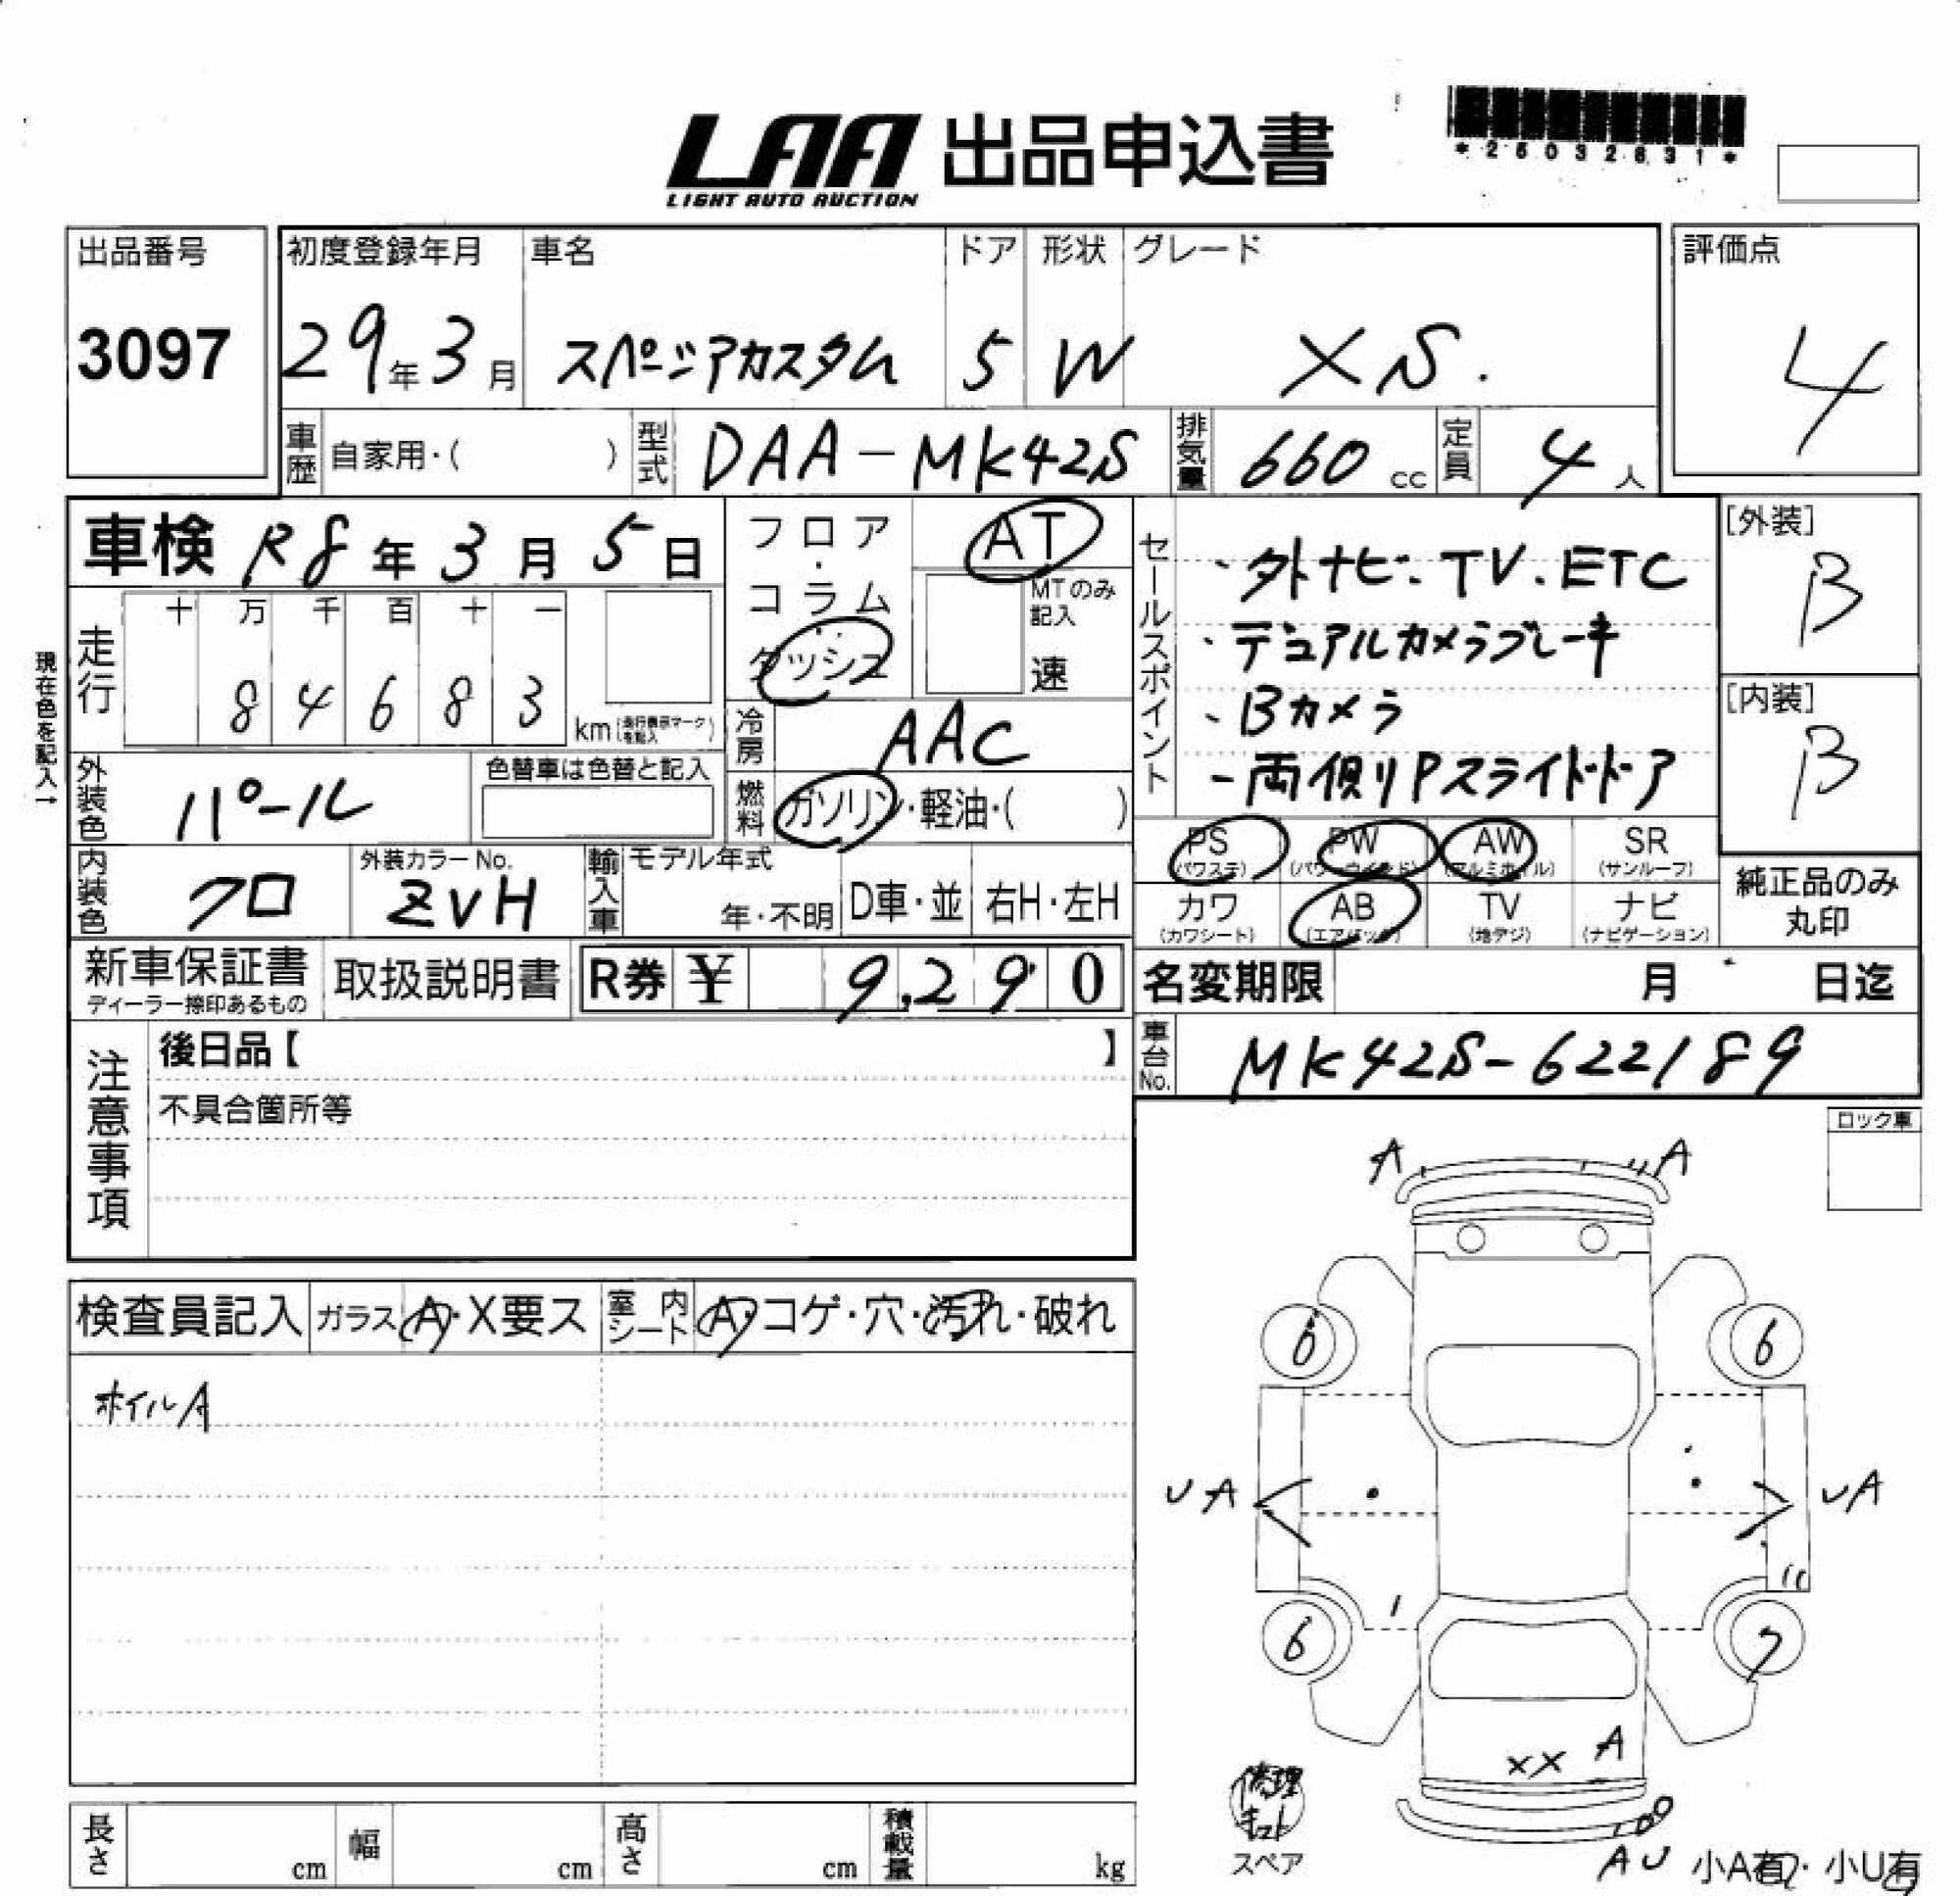 LAA 出品申込書
LIGHT AUTO AUCTION
*25032631*
出品番号
3097
初度登録年月 車名 ドア 形状 グレード
29年3月 スペーシアカスタム 5 W XS.
評価点
4
車歴 自家用・( ) 型式 DAA-MK42S 排気量 660 cc 定員 4 人
車検 R8年3月5日
フロア・コラム・ダッシュ
AT
MTのみ記入
速
セールスポイント
・外ナビ.TV.ETC
・デュアルカメラブレーキ
、Bカメラ
-両側りPスライドドア
[外装]
B
[内装]
B
現在色を記入→
走行 十 万 千 百 十 一
8 4 6 8 3 km(走行表示マークを記入)
冷房 AAC
外装色 パール 色替車は色替と記入
燃料 ガソリン・軽油・( )
PS (パワステ) PW (パワーウインド) AW (アルミホイル) SR (サンルーフ)
カワ (カワシート) AB (エアバッグ) TV (地デジ) ナビ (ナビゲーション)
純正品のみ丸印
内装色 クロ 外装カラーNo. ZVH 輸入車 モデル年式 年・不明 D車・並 右H・左H
新車保証書 ディーラー捺印あるもの 取扱説明書 R券 ¥ 9,290
名変期限 月 日迄
車台No. MK42S-622189
注意事項
後日品【 】
不具合箇所等
ロック車
A A
検査員記入 ガラス A・X要ス 室内シート A・コゲ・穴・汚れ・破れ
ホイルA
6 6
UA UA
6 7
XX A
修理キット
スペア
AU 小A有・小U有
長さ cm 幅 cm 高さ cm 積載量 kg